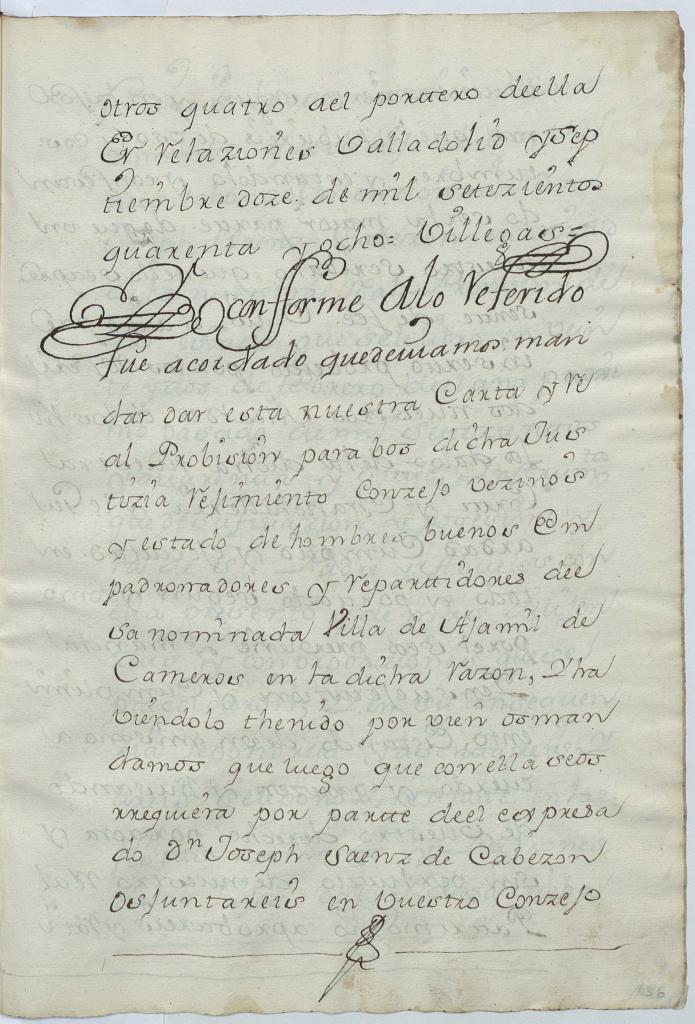 otros quatro ael porttero deella
En Relaziones Valladolid y Sep
tiembre doze de mil setezientos
quarenta y ocho= Villegas=
conforme Alo Referido
fue acordado quedeviamos man
dar dar esta nuestra Carta y Re
al Probision para bos dicha Jus
tizia Rejimiento Conzejo vezinos
y estado de hombres buenos Em
padronadores y reparttidores dee
sa nominada Villa de Ajamil de
Cameros en la dicha razon, Yha
viendolo thenido por vien osman
damos que luego que con ella seos
rrequiera por partte deel expresa
do Dn Joseph Saenz de Cabezon
os juntareis en Vuestro Conzejo
136